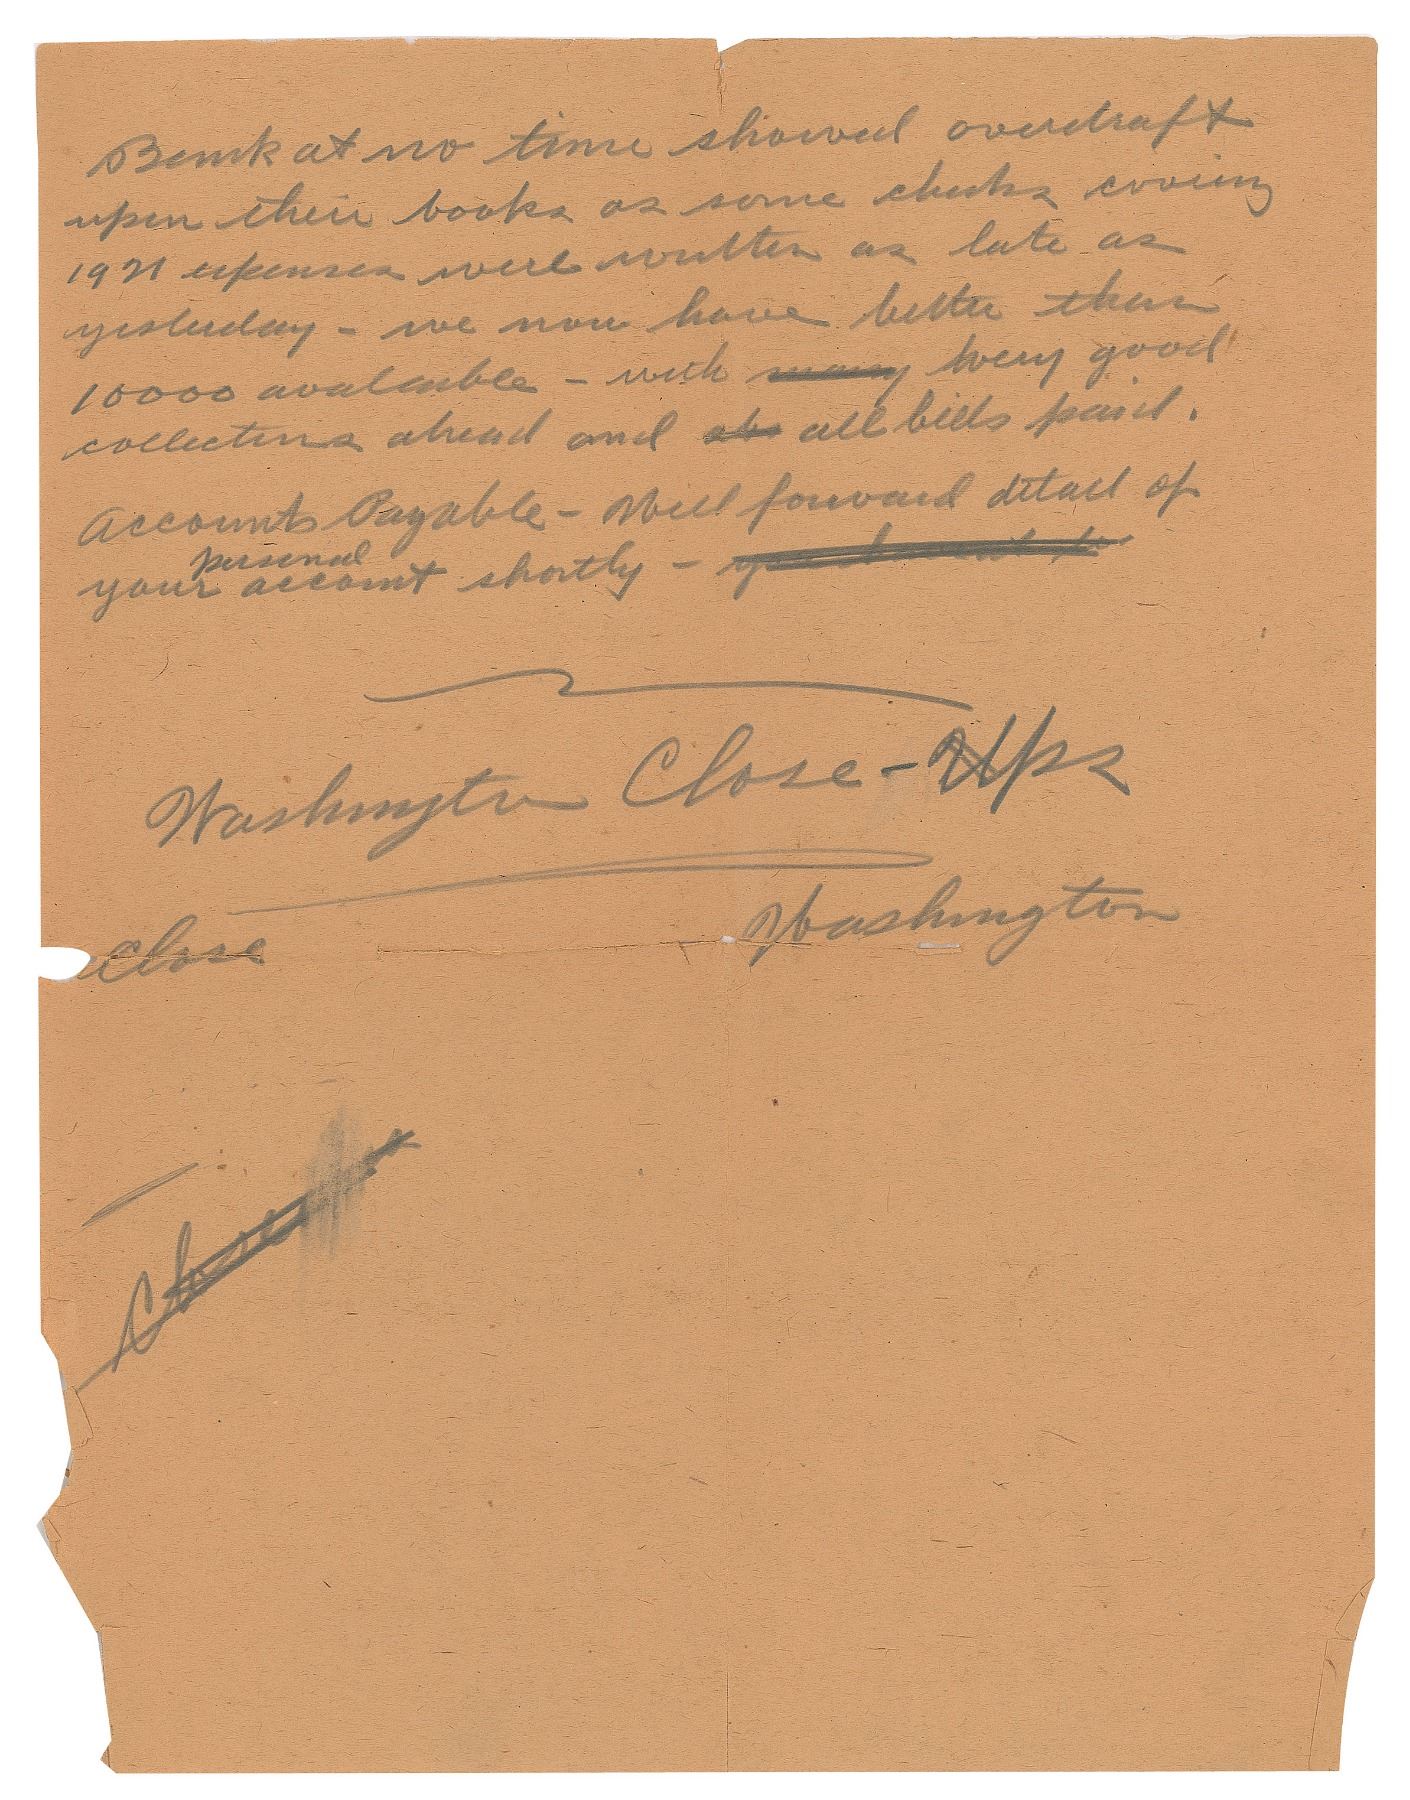 Bank at no time showed overdraft
upon their books as some checks covering
1921 expenses were written as late as
yesterday - we now have better than
10000 available - with many very good
collections ahead and all bills paid.
Accounts Payable - Will forward detail of
personal
your account shortly -
Washington Close-Ups
Washington
Close